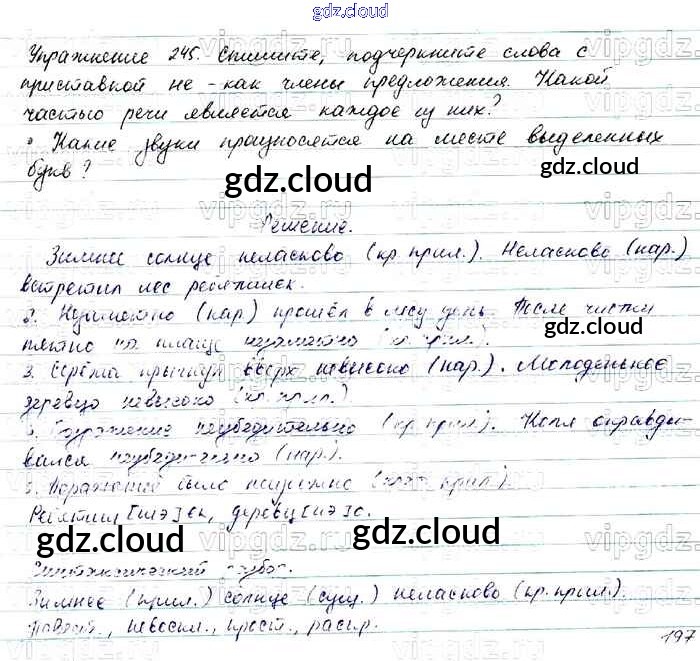 gdz.cloud
Упражнение 245. Спишите, подчеркните слова с
приставкой не - как члены предложения. Какой
частью речи является каждое из них?
Какие звуки произносятся на месте выделенных
букв?
gdz.cloud gdz.cloud
Решение.
Зимнее солнце неласково (кр. прил.). Неласково (нар.)
встретил лес ребятишек.
2. Незаметно (нар.) прошёл в лесу день. После чистки
пятно на плаще незаметно (кр. прил.).
gdz.cloud gdz.cloud
3. Серёжа прыгнул вверх невысоко (нар.). Молоденькое
деревцо невысоко (кр. прил.).
Возражение неубедительно (кр. прил.). Коля оправды-
вался неубедительно (нар.).
5. Поражение было неизбежно (прил.).
gdz.cloud gdz.cloud
Синтаксический разбор.
Зимнее (прил.) солнце (сущ.) неласково (кр. прил.).
повеств., невоскл., прост., распр.
197